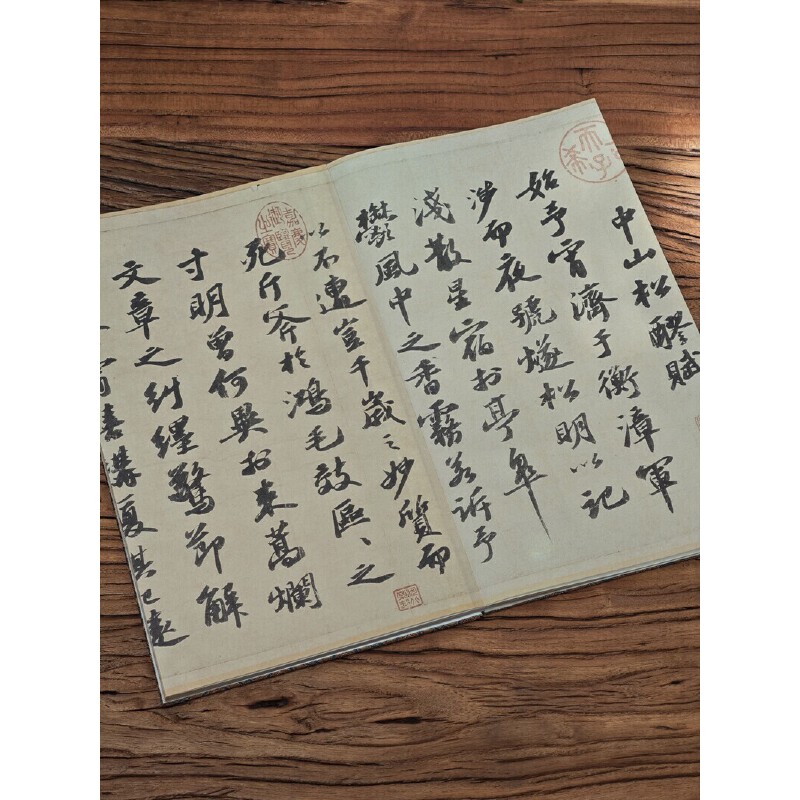 中山松醪賦
始予宵濟于衡漳軍
涉而夜號燧松明以記
淺散星宿於亭皋
鬱風中之香霧若訴予
以不遭豈千歲之妙質而
死斤斧於鴻毛效區〻之
寸明曾何異於束蒿爛
文章之糾纆驚節解
嗟構夏其已遠
嘉慶御覽之寶